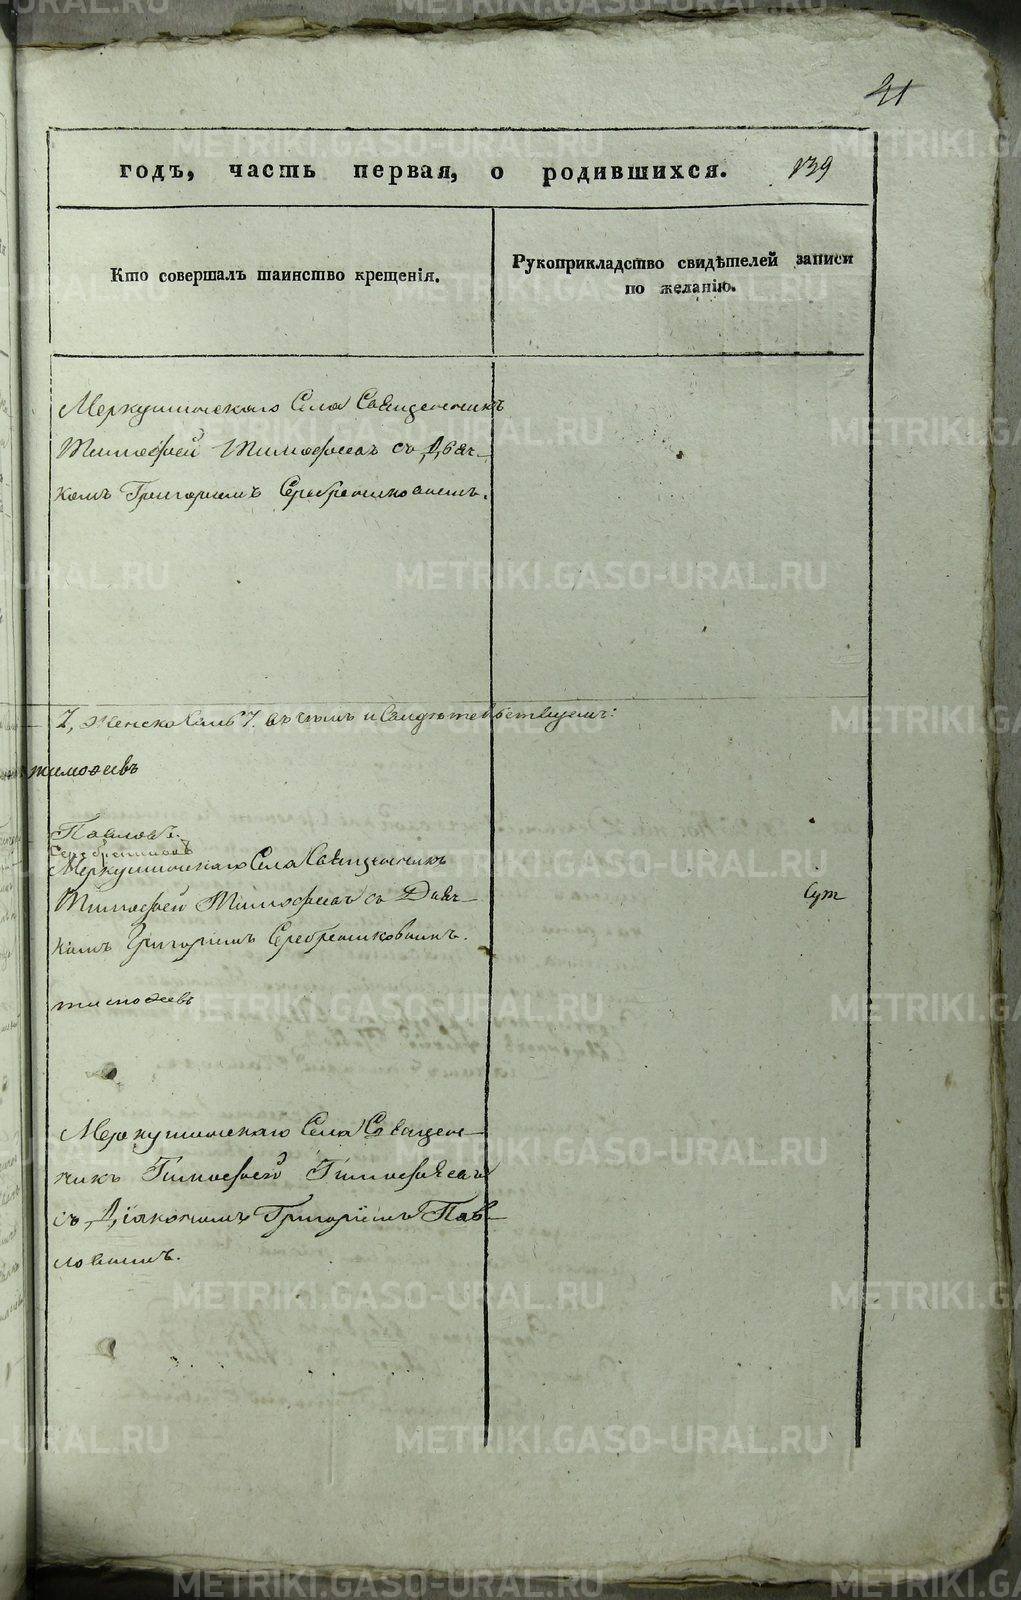 41
годъ, часть первая, о родившихся. 139
Кто совершалъ таинство крещенія.
Рукоприкладство свидѣтелей записи
по желанію.
Меркушинскаго Села Священникъ
Тимофей Тимофеевъ съ Дьяч-
комъ Григориемъ Серебренниковымъ.
7, Женска 7. въ чемъ и свидѣтельствуемъ:
тимофеевъ
Павловъ.
Серебренников
Меркушинскаго Села Священникъ
Тимофей Тимофеевъ съ Дьяч-
комъ Григориемъ Серебренниковымъ.
тимофеевъ
Меркушинскаго Села Священ-
никъ Тимофей Тимофѣевъ
съ Діякономъ Григоріемъ Пав-
ловымъ.
METRIKI.GASO-URAL.RU